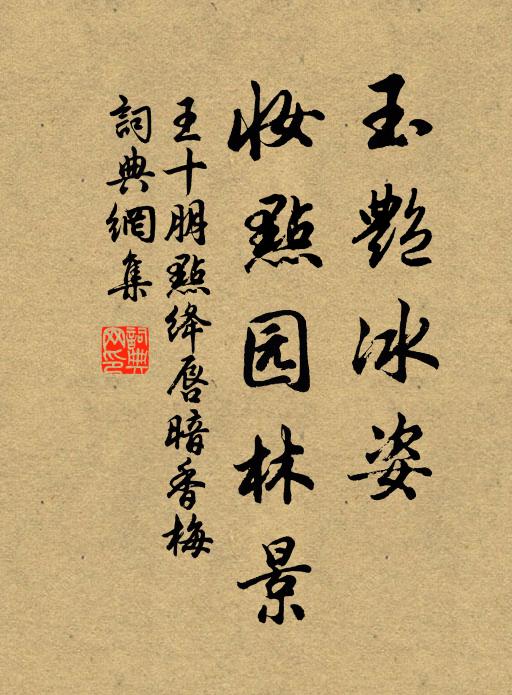 玉艷冰姿
妝點园林景
王十朋點绛唇暗香梅
詞典網集
詞典网印